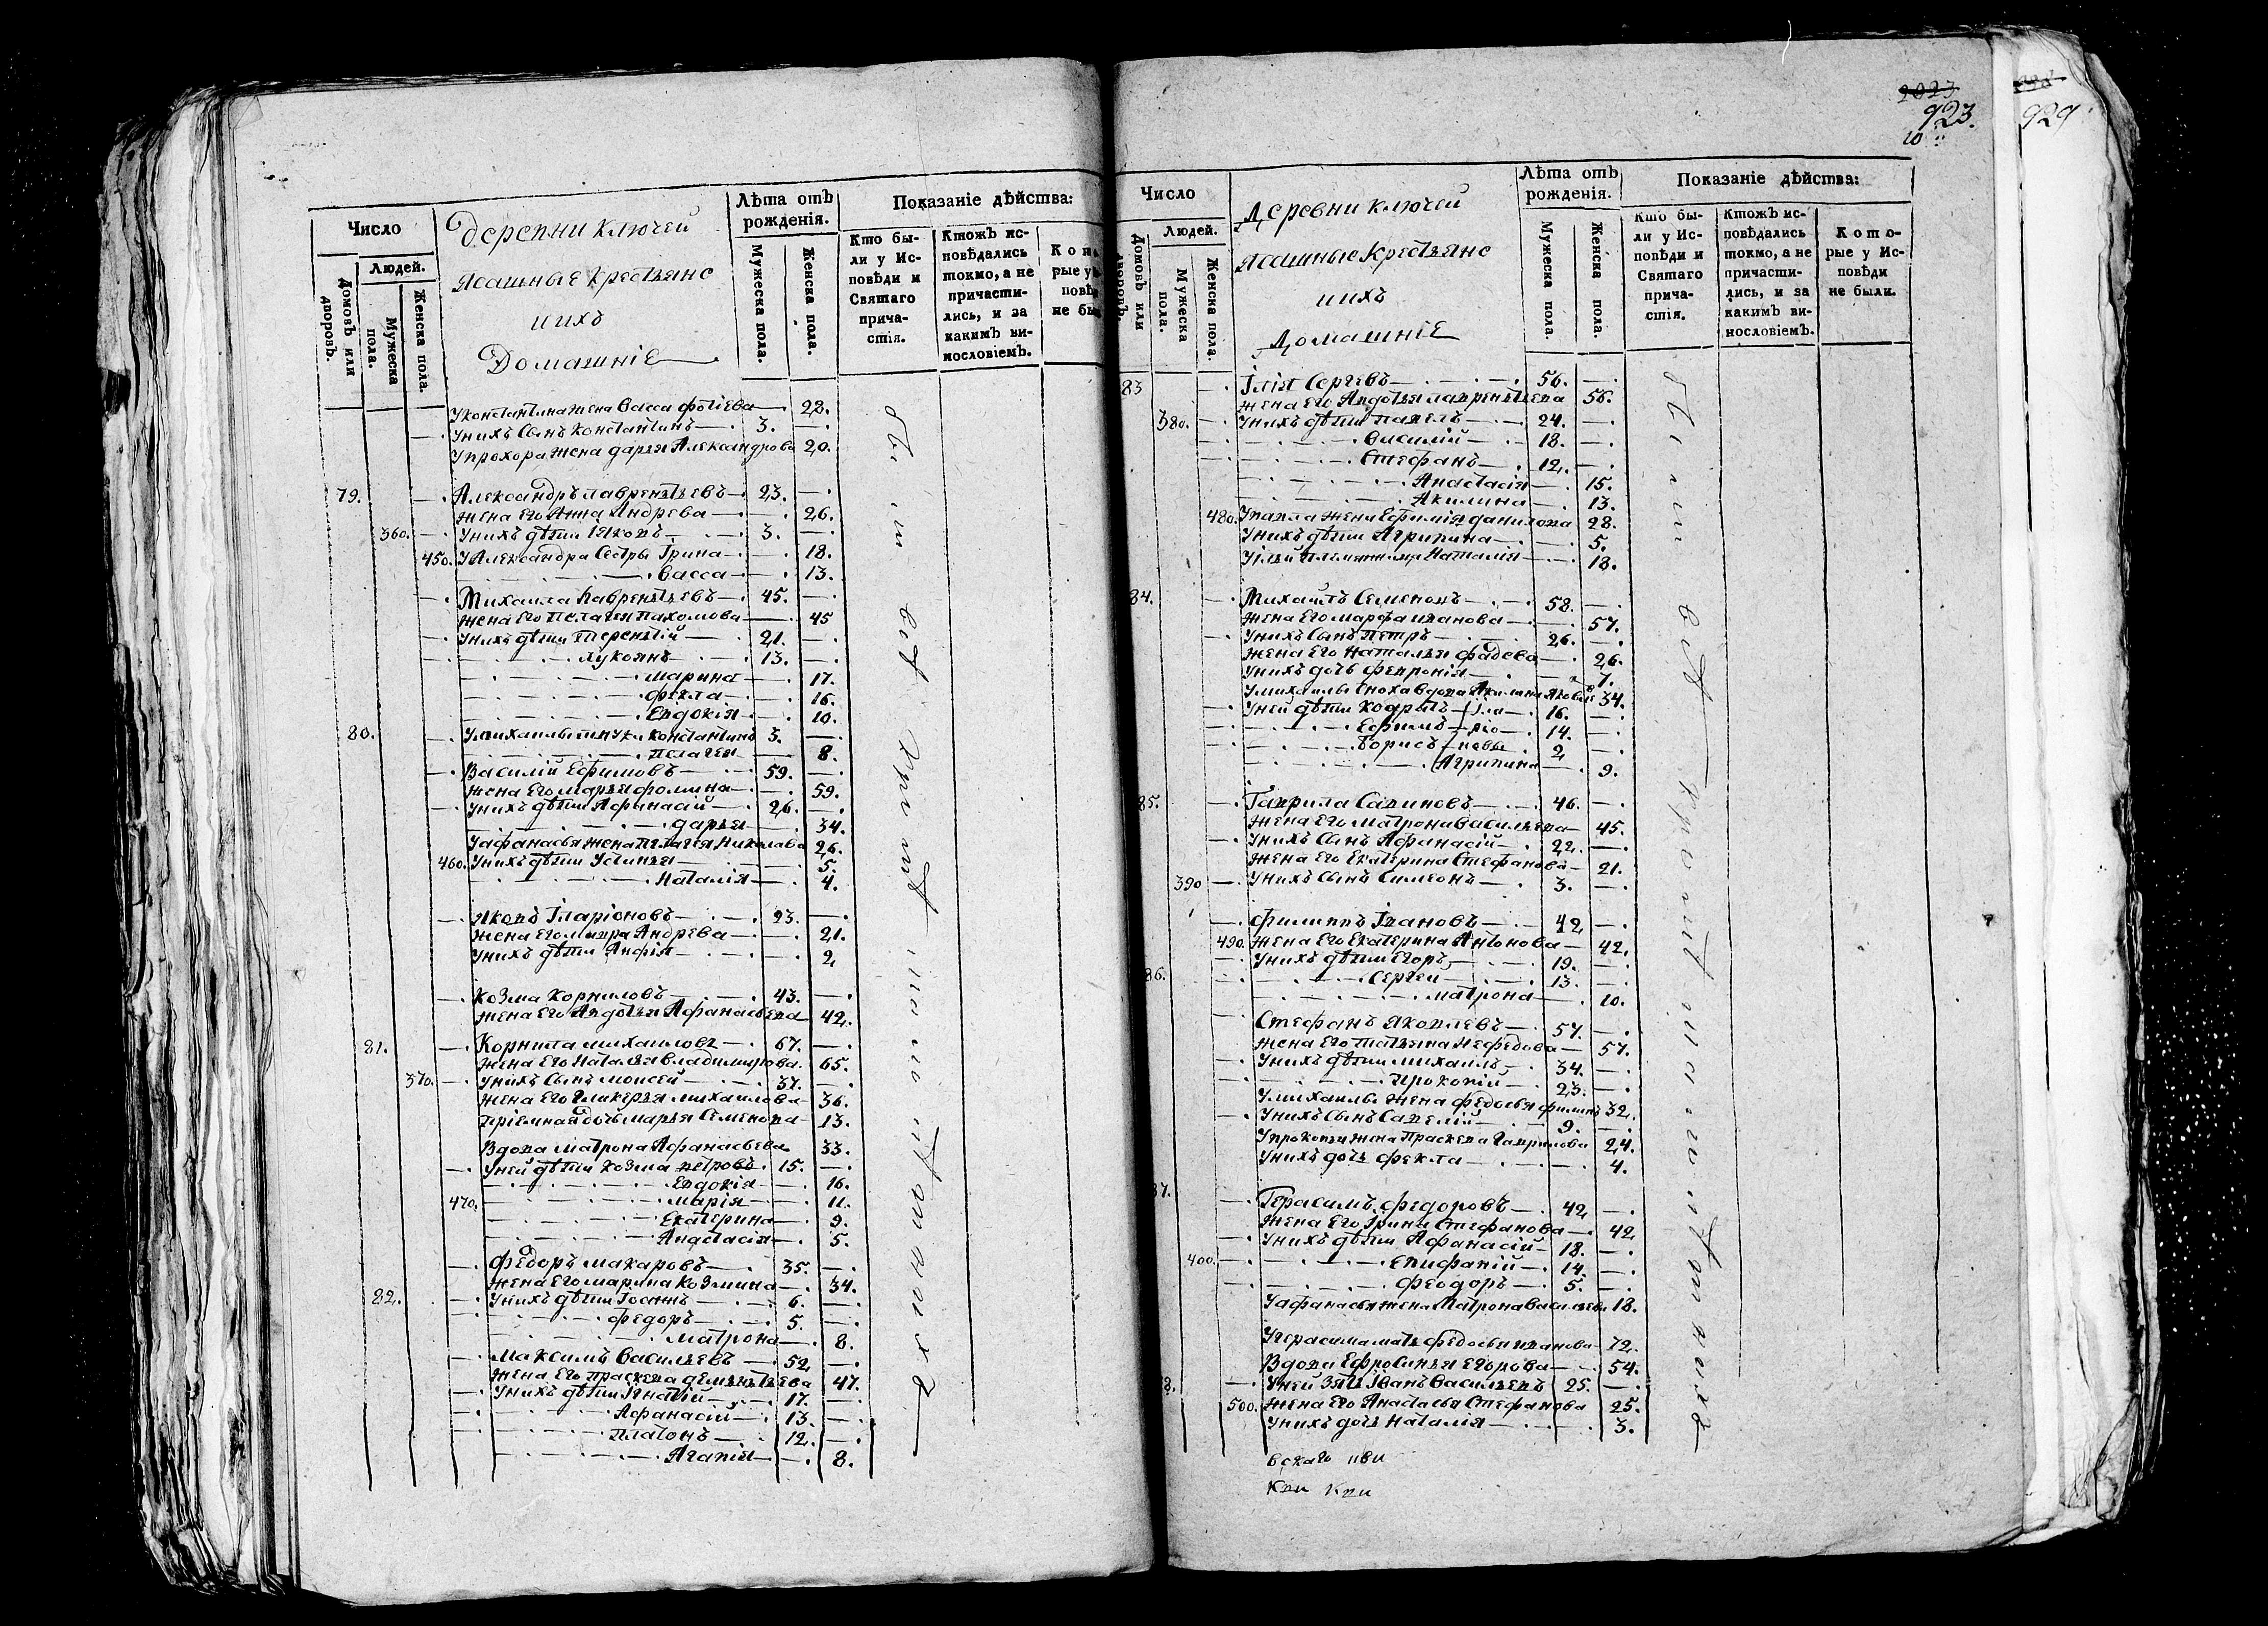 Число
Людей.
Домовъ или дворовъ.
Мужеска пола.
Женска пола.
Деревни Ключей
Ясашные Крестьяне
и ихъ
Домашніе
Лѣта отъ рожденія.
Мужеска пола.
Женска пола.
Показаніе дѣйства:
Кто бы-
ли у Ис-
повѣди и
Святаго
прича-
стія.
Ктожъ ис-
повѣдались
токмо, а не
причасти-
лись, и за
какимъ ви-
нословіемъ.
У константина жена васса фотіева 22.
У нихъ сынъ константинъ 3.
У прохора жена дарья Александрова 20.
79. Александръ лаврентьевъ 23.
жена его Анна Андрева 26.
360. У нихъ дѣти Яковъ 3.
450. У Александра сестры Ірина 18.
васса 13.
Михаила лаврентьевъ 45.
жена его пелагея пахомова 45
У нихъ дѣти терентій 21.
лукоянъ 13.
марина 17.
фекла 16.
Евдокія 10.
80. У михаилы внуки константинъ 3.
пелагея 8.
Василій Ефимовъ 59.
жена его марья фомина 59.
У нихъ дѣти Афанасій 26.
дарья 34.
У афанасья жена пелагея Николаева 26.
460. У нихъ дѣти Устинья 5.
Наталія 4.
Яковъ Іларіоновъ 23.
жена его мавра Андрева 21.
У нихъ дѣти Анфія 2
Козма Корниловъ 43.
жена его Авдотья Афанасьева 42.
81. Корнила михаиловъ 67.
жена его Наталья владимирова 65.
370. У нихъ сынъ моисей 37.
жена его гликерья михаилова 36.
Пріемная дочь марья семенова 13.
Вдова матрона Афанасьева 33.
У ней дѣти козма петровъ 15.
Евдокія 16.
470. марія 11.
Екатерина 9.
Анастасія 5.
Федоръ макаровъ 35.
жена его марина козмина 34.
82. У нихъ дѣти Іоаннъ 6.
федоръ 5.
матрона 8.
Максимъ васильевъ 52
жена его праскева дементьева 47.
У нихъ дѣти Игнатій 17.
Афанасій 13.
платонъ 12.
Агапія 8.
2023
923.
10
929
Число
Людей.
Домовъ или дворовъ.
Мужеска пола.
Женска пола.
Деревни Ключей
Ясашные Крестьяне
и ихъ
Домашніе
Лѣта отъ рожденія.
Мужеска пола.
Женска пола.
Показаніе дѣйства:
Кто бы-
ли у Ис-
повѣди и
Святаго
прича-
стія.
Ктожъ ис-
повѣдались
токмо, а не
причасти-
лись, и за
какимъ ви-
нословіемъ.
Кото-
рые у Ис-
повѣди
не были.
83 Ілія Сергѣевъ 56.
жена его Авдотья лаврентьева 56.
380. У нихъ дѣти павелъ 24.
василій 18.
Стефанъ 12.
Анастасія 15.
Акилина 13.
480. У павла жена Ефимія данилова 28.
У нихъ дѣти Агрипина 5.
У іліи племянница Наталія 18.
84. Михаилъ Семеновъ 58.
жена его марфа иванова 57.
У нихъ сынъ петръ 26.
жена его наталья фадева 26.
У нихъ дочь февронія 7.
У михаилы сноха вдова Акилина яковлева 34.
У ней дѣти кодратъ 16.
Ефимъ 14.
борисъ 2
Агрипина 9.
85. Гаврила Савиновъ 46.
жена его матрона васильева 45.
У нихъ сынъ Афанасій 22.
жена его Екатерина Стефанова 21.
390 У нихъ сынъ Симеонъ 3.
Филиппъ Івановъ 42
490. жена его Екатерина Антонова 42.
У нихъ дѣти Егоръ 19.
86. Сергеи 13.
матрона 10.
Стефанъ яковлевъ 57.
жена его татьяна нефедова 57.
У нихъ дѣти михаилъ 34.
прокопій 23.
У михаилы жена федосья филипова 32.
У нихъ сынъ савелій 9.
У прокопья жена праскева гаврилова 24.
У нихъ дочь фекла 4.
87. Герасимъ федоровъ 42
жена его Ірина Стефанова 42
У нихъ дѣти Афанасій 18.
400. Епифаній 14.
феодоръ 5.
У афанасья жена матрона васильева 18.
У герасима мать федосья иванова 72.
Вдова Ефросинья Егорова 54.
8. У ней зять Іванъ васильевъ 25.
500. жена его Анастасья Стефанова 25.
У нихъ дочь Наталія 3.